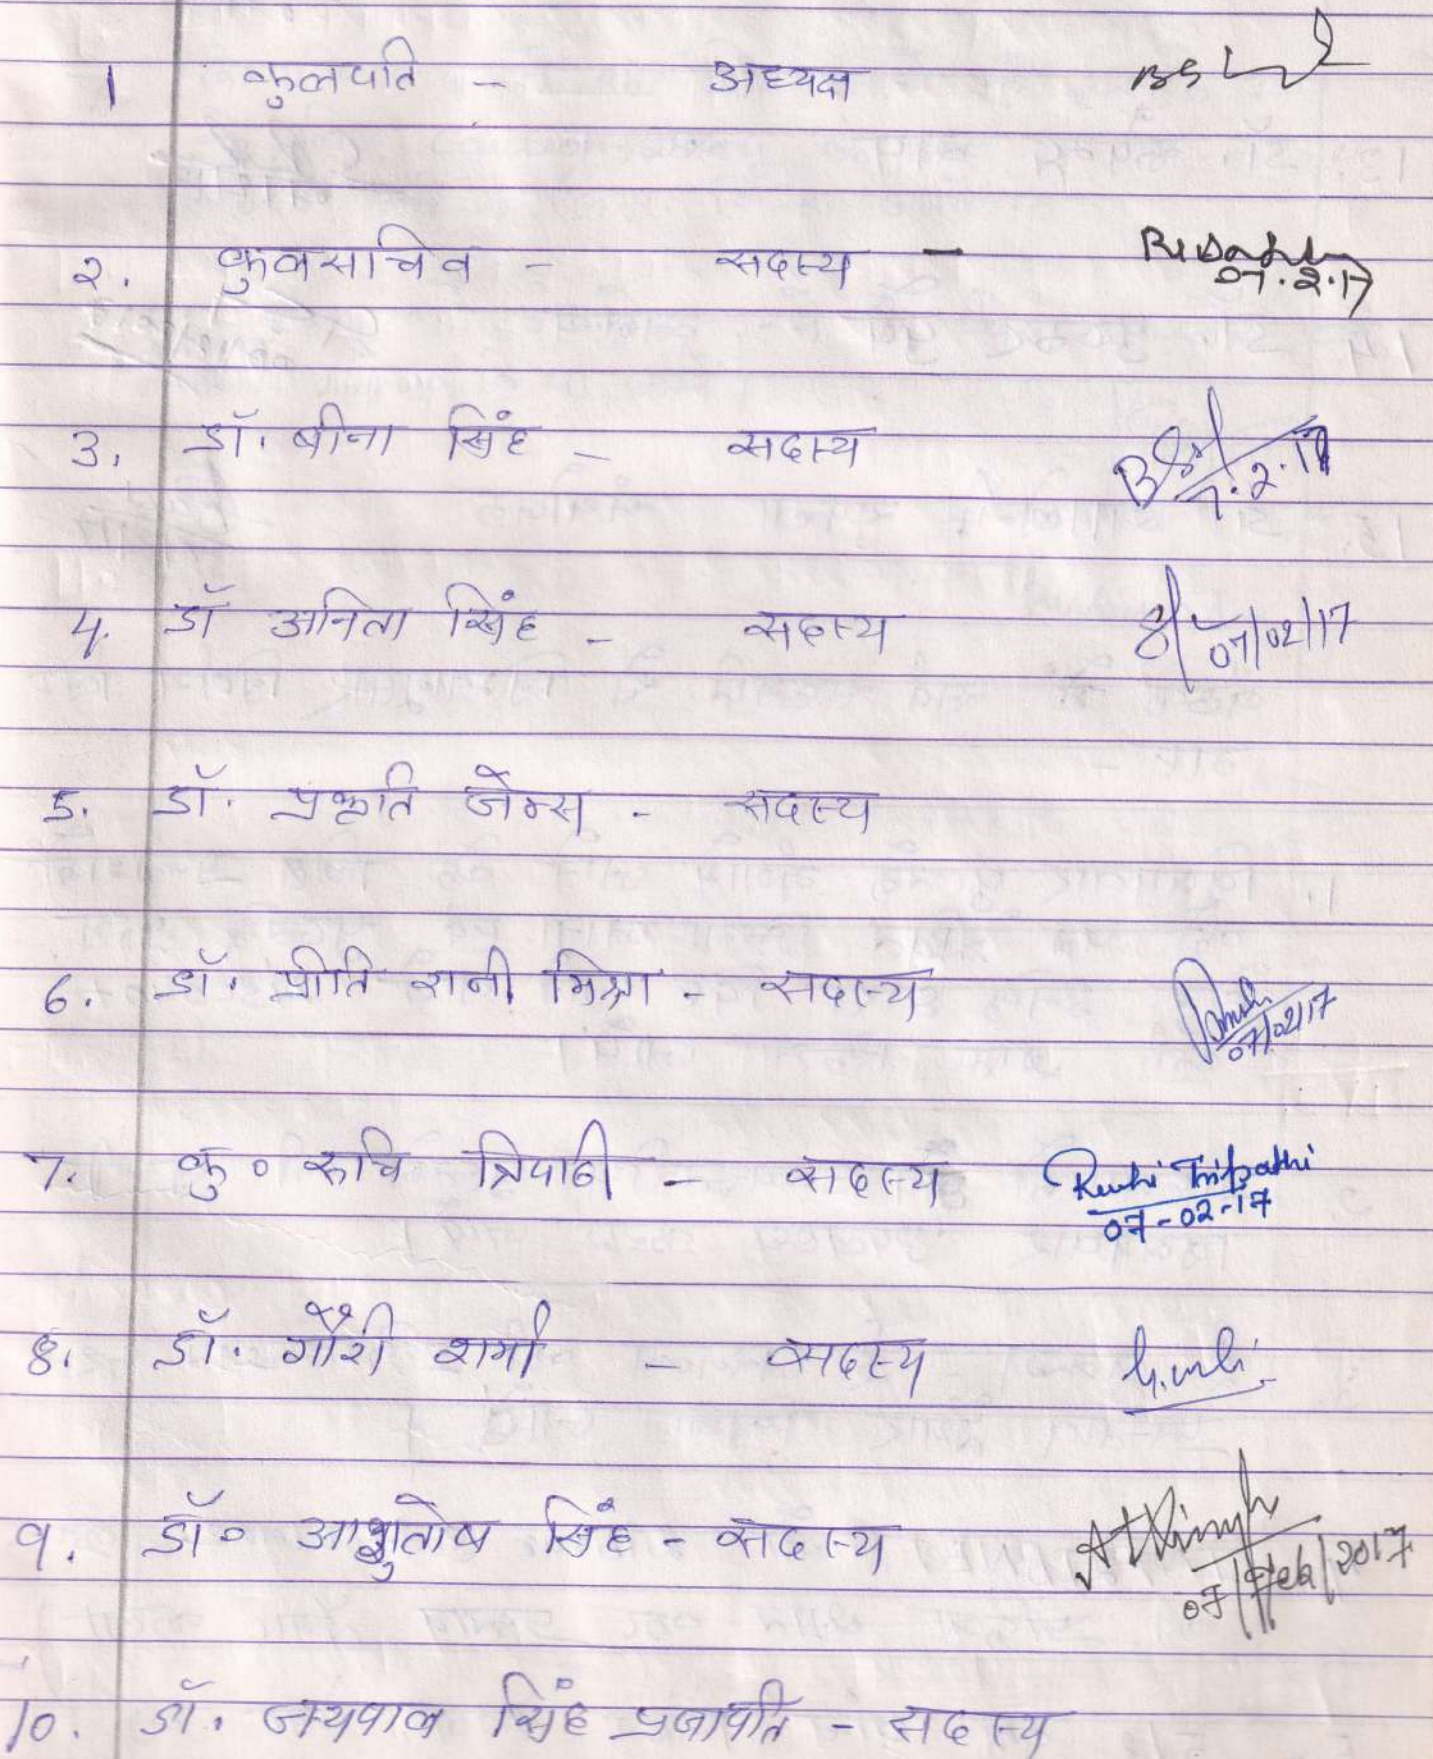 1 कुलपति - अध्यक्ष
2. कुलसचिव - सदस्य -
07.2.17
3. डॉ. बीना सिंह - सदस्य
7.2.17
4. डॉ अनिता सिंह - सदस्य
07/02/17
5. डॉ. प्रकृति जेम्स - सदस्य
6. डॉ. प्रीति रानी मिश्रा - सदस्य
07/02/17
7. कु० रूचि त्रिपाठी - सदस्य Ruchi Tripathi
07-02-17
8. डॉ. गौरी शर्मा - सदस्य
9. डॉ० आशुतोष सिंह - सदस्य
07/Feb/2017
10. डॉ. जयपाल सिंह प्रजापति - सदस्य